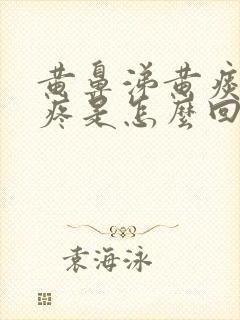 黄鼻涕黄痰
疼是怎麼回
袁海泳